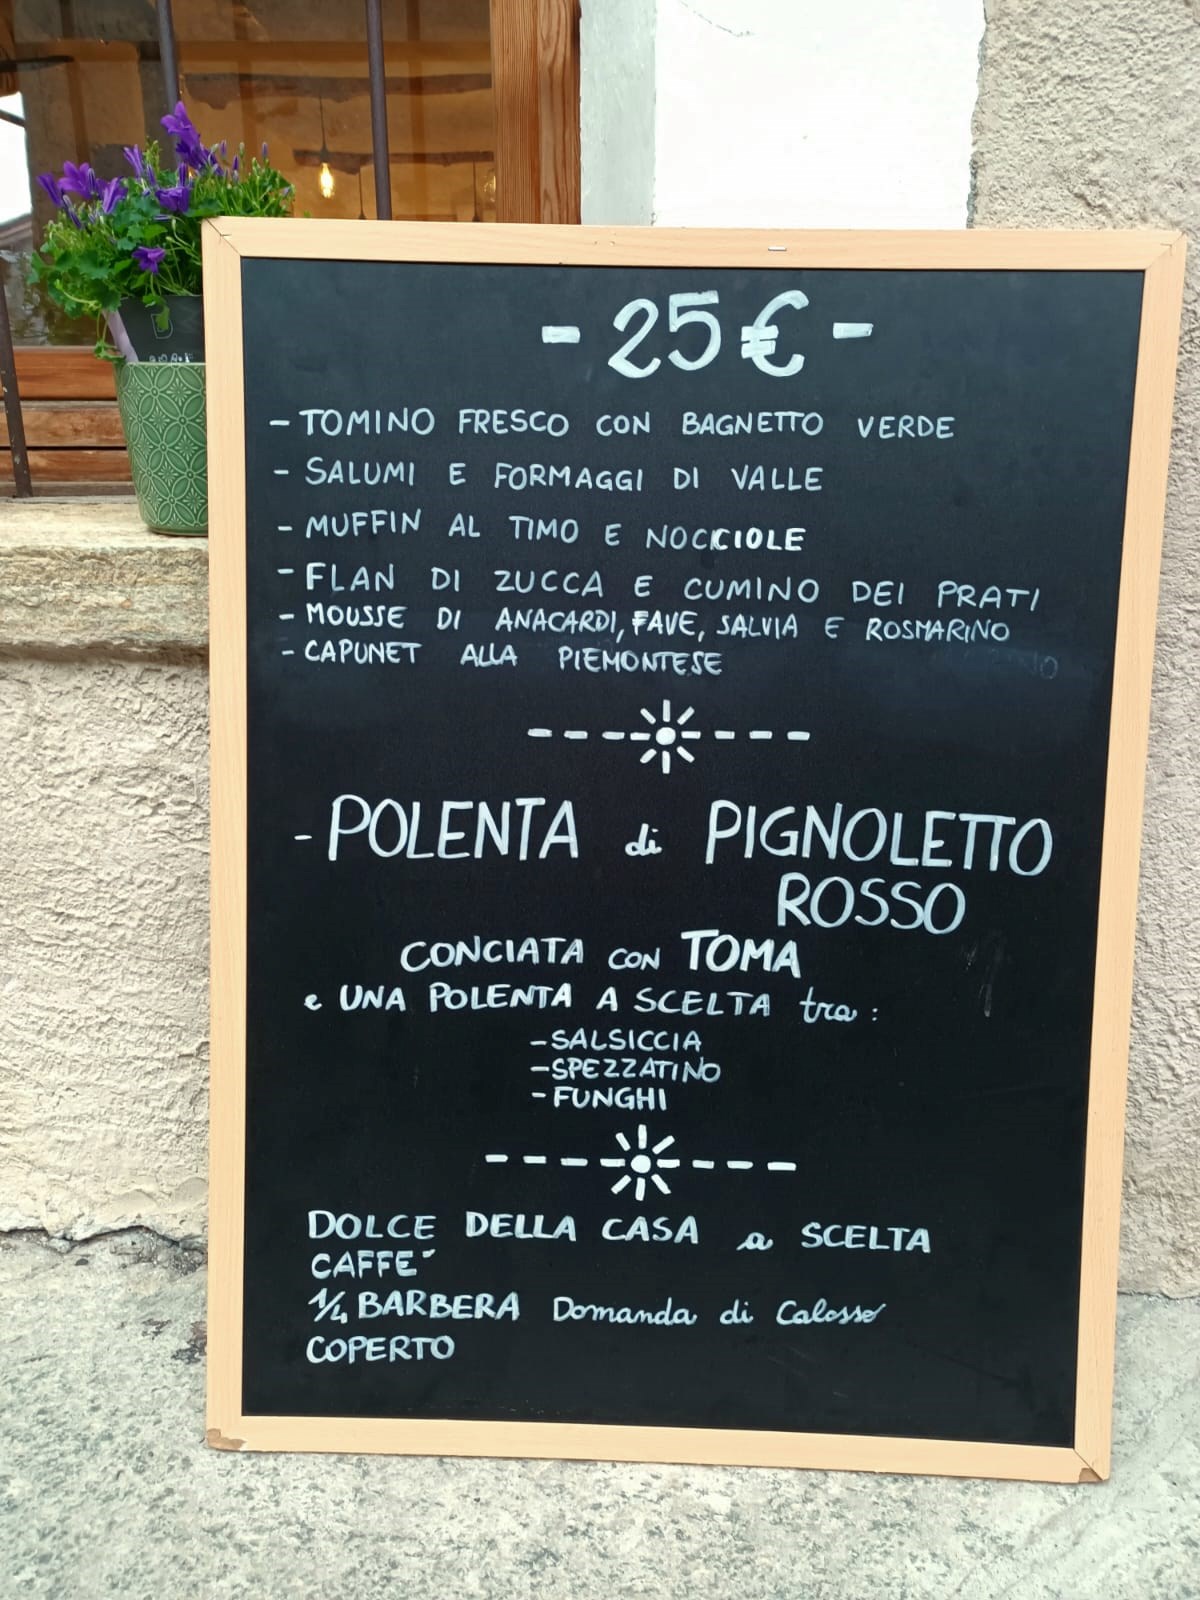 - 25€ -
- TOMINO FRESCO CON BAGNETTO VERDE
- SALUMI E FORMAGGI DI VALLE
- MUFFIN AL TIMO E NOCCIOLE
- FLAN DI ZUCCA E CUMINO DEI PRATI
- MOUSSE DI ANACARDI, FAVE, SALVIA E ROSMARINO
- CAPUNET ALLA PIEMONTESE
- POLENTA di PIGNOLETTO
ROSSO
CONCIATA CON TOMA
e UNA POLENTA A SCELTA tra:
- SALSICCIA
- SPEZZATINO
- FUNGHI
DOLCE DELLA CASA a SCELTA
CAFFE'
1/4 BARBERA Domanda di Calosso
COPERTO